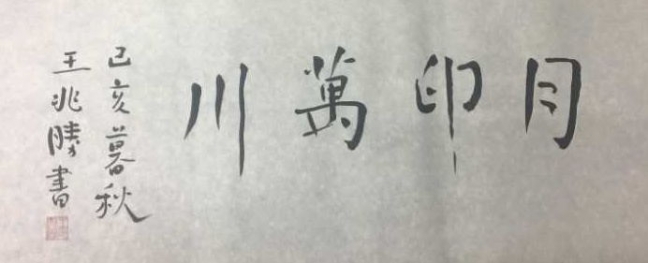 月印萬川
己亥暮秋
王兆勝書